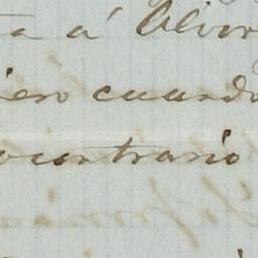 a á Oliver
iero cuando
contrario